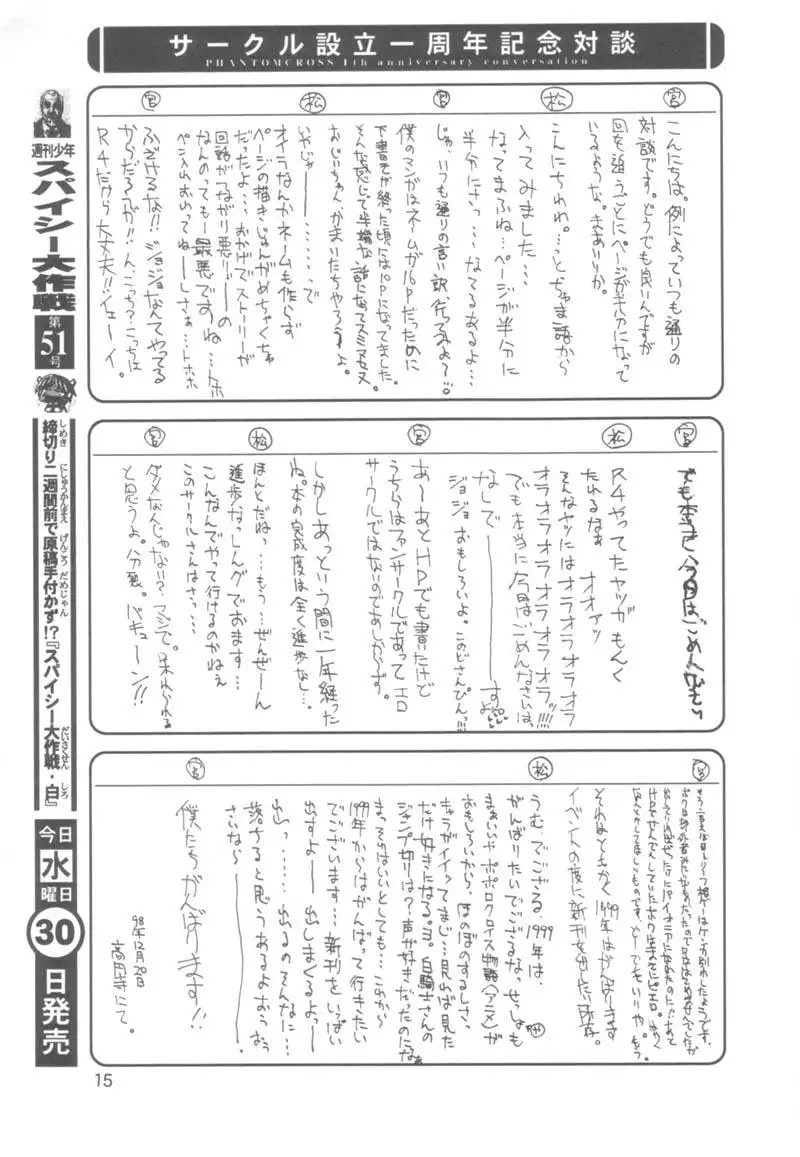 サークル設立一周年記念対談
PHANTOMCROSS 1th anniversary conversation
宮
こんにちは。例によっていつも通りの
対談です。どうでも良いんですが
回を追うごとにページが半分になって
いるような。きありか。
松
こんにちわわ。…とちゃま語から
入ってみました…
なってまふね…ページが半分に
半分にさっ…なてるあるよ…
宮
じゃ、いつも通りの言い訳、行ってみよ〜!!。
僕のマンガはネームが16Pだったために
下書きが終った頃には10Pになってました。
そんな感じで半端な話になってスミマセヌ
おじいちゃんがまいたちやろうよ。
松
いやじゃー………で
オイラなんかネームも作らず
ページの描きじゅんがめちゃくちゃ
だったよ…おかげでストーリーが
回話がつながり悪りぃーの
なんのっても…最悪ですね…トホ
ペン入れおわってねーしさぁ…トホホ
宮
ふざけるな!!ジョジョなんてやってる
からだろうが!!んこっち?こっちは
R4だから大丈夫!!イェーイ。
宮
でも本当に今回はごめんなさい
松
R4やってたヤツがもんく
たれるなぁ オオァッ
そんなヤツにはオラオラオラオラ
オラオラオラオラオラオラ!!!!
でも本当に今回はごめんなさいは
なしで――――――すよ
ジョジョおもしろいよ。このどさんぴんっ!!!
宮
あ〜あとHPでも書いたけど
うちらはファンサークルであってエロ
サークルではないのであしからず。
しかしあっという間に一年経った
ね。本の完成度は全く進歩なし…
松
ほんとだねっ…もう…ぜんぜーん
進歩なっしんグでおます…
こんなんでやって行けるのかねぇ
このサークルさんはさっ…
宮
ダメなんじゃない?マジで。呆れられる
と思うよ。分裂。バキューン!!
宮
それはともかく1999年はがんばります
イベントの度に新刊を出したい所存。
松
うむ、でござる。1999年は、
がんばりたいでござるな。せっしゃも
まぁいいや ポポロクロイス物語(アニメ)が
おもしろいから、ほのぼのするしさ。
キャラがイイッてまじ…見れば見た
だけ好きになる。ヨ。白騎士さんの
ジャンプ切りは?声が好きだったのになぁ
まっそれはいいとしても…これから
1999年からはがんばって行きたい
でございます…新刊をいっぱい
出すよ――出しまくるよ――
出っ……出るのそんなに…
落ちると思うあるよおぅおぅ
さいなら――――――
宮
僕たちがんばります!!
98年12月20日
高田寺にて。
週刊少年
スパイシー大作戦
第51号
締切り二週間前で原稿手付かず!?『スパイシー大作戦・白』
しめき にしゅうかんまえ げんこう だめじゃん だいさくせん しろ
今日
水
曜日
30
日発売
15